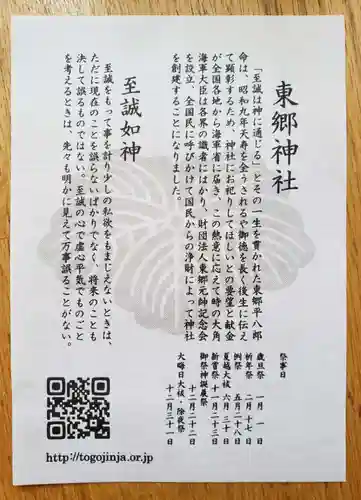 東郷神社
「至誠は神に通じる」とその一生を貫かれた東郷平八郎
命は、昭和九年天寿を全うされるや御徳を長く後生に伝え
て顕彰するため、神社にお祀りしてほしいとの要望と献金
が全国各地から海軍省に届き、この熱意に応えて時の大角
海軍大臣は各界の識者にはかり、財団法人東郷元帥記念会
を設立、全国民に呼びかけて国民からの浄財によって神社
を創建することになりました。
至誠如神
至誠をもって事を計り少しの私欲をもまじえないときは、
ただに現在のことを誤らないばかりでなく、将来のことも
決して誤るものではない。至誠の心で虚心平気でものごと
を考えるときは、先々も明かに見えて万事誤ることがない。
祭事日
歳旦祭 一月一日
祈年祭 二月十七日
例祭 五月二十八日
夏越大祓 六月三十日
新嘗祭 十一月二十三日
御祭神誕晨祭 十二月二十二日
大晦日大祓・除夜祭 十二月三十一日
http://togojinja.or.jp